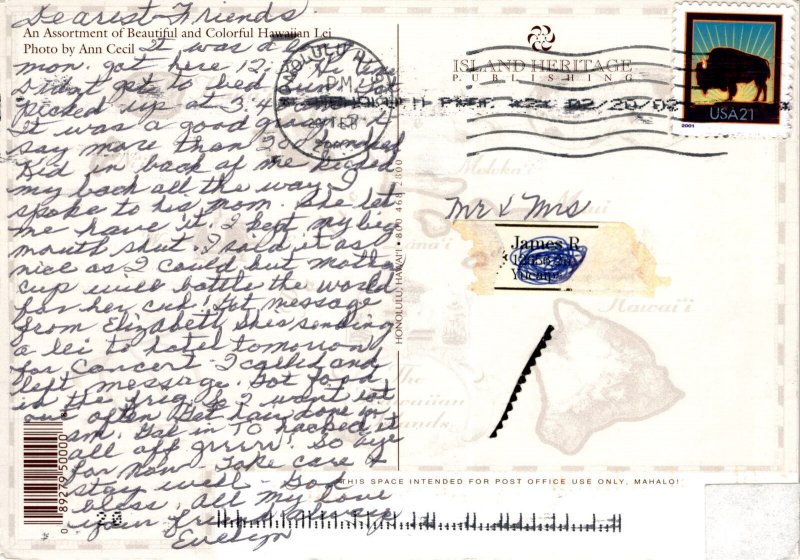 Dearest Friends
An Assortment of Beautiful and Colorful Hawaiian Lei
Photo by Ann Cecil
It was a
mon. got here 12.
Didn't get to bed
Picked up at 3:4
It was a good
say more than 20 hundred
kid in back of me kicked
my back all the way. I
spoke to his mom. She let
me have it. I kept my big
mouth shut. I said it as
nice as I could but mother
will battle the world
for her cub! Got message
from Elizabeth she's sending
a lei to hotel tomorrow
for concert. I called and
left message. Got food
in the frig so I won't eat
out often. Get hair done in
am. Gal in TO hacked it
all off grrrr! So bye
for now. Take care &
stay well. God
bless. All my love
your friend always
Evelyn
0 89279 50000
HONOLULU, HAWAII • 800 468 2800
HONOLULU HI
PM
FEB
ISLAND HERITAGE
PUBLISHING
USA 21
2001
Mr & Mrs
James R
Moloka'i
Maui
Hawai'i
The
Hawaiian
Islands
THIS SPACE INTENDED FOR POST OFFICE USE ONLY, MAHALO!